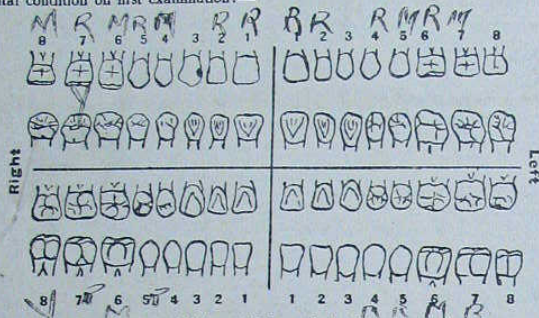 tal condition on first examination.
M R M R M R R R R R M R M
8 7 6 5 4 3 2 1 1 2 3 4 5 6 7 8
Right
Left
8 7 6 5 4 3 2 1 1 2 3 4 5 6 7 8